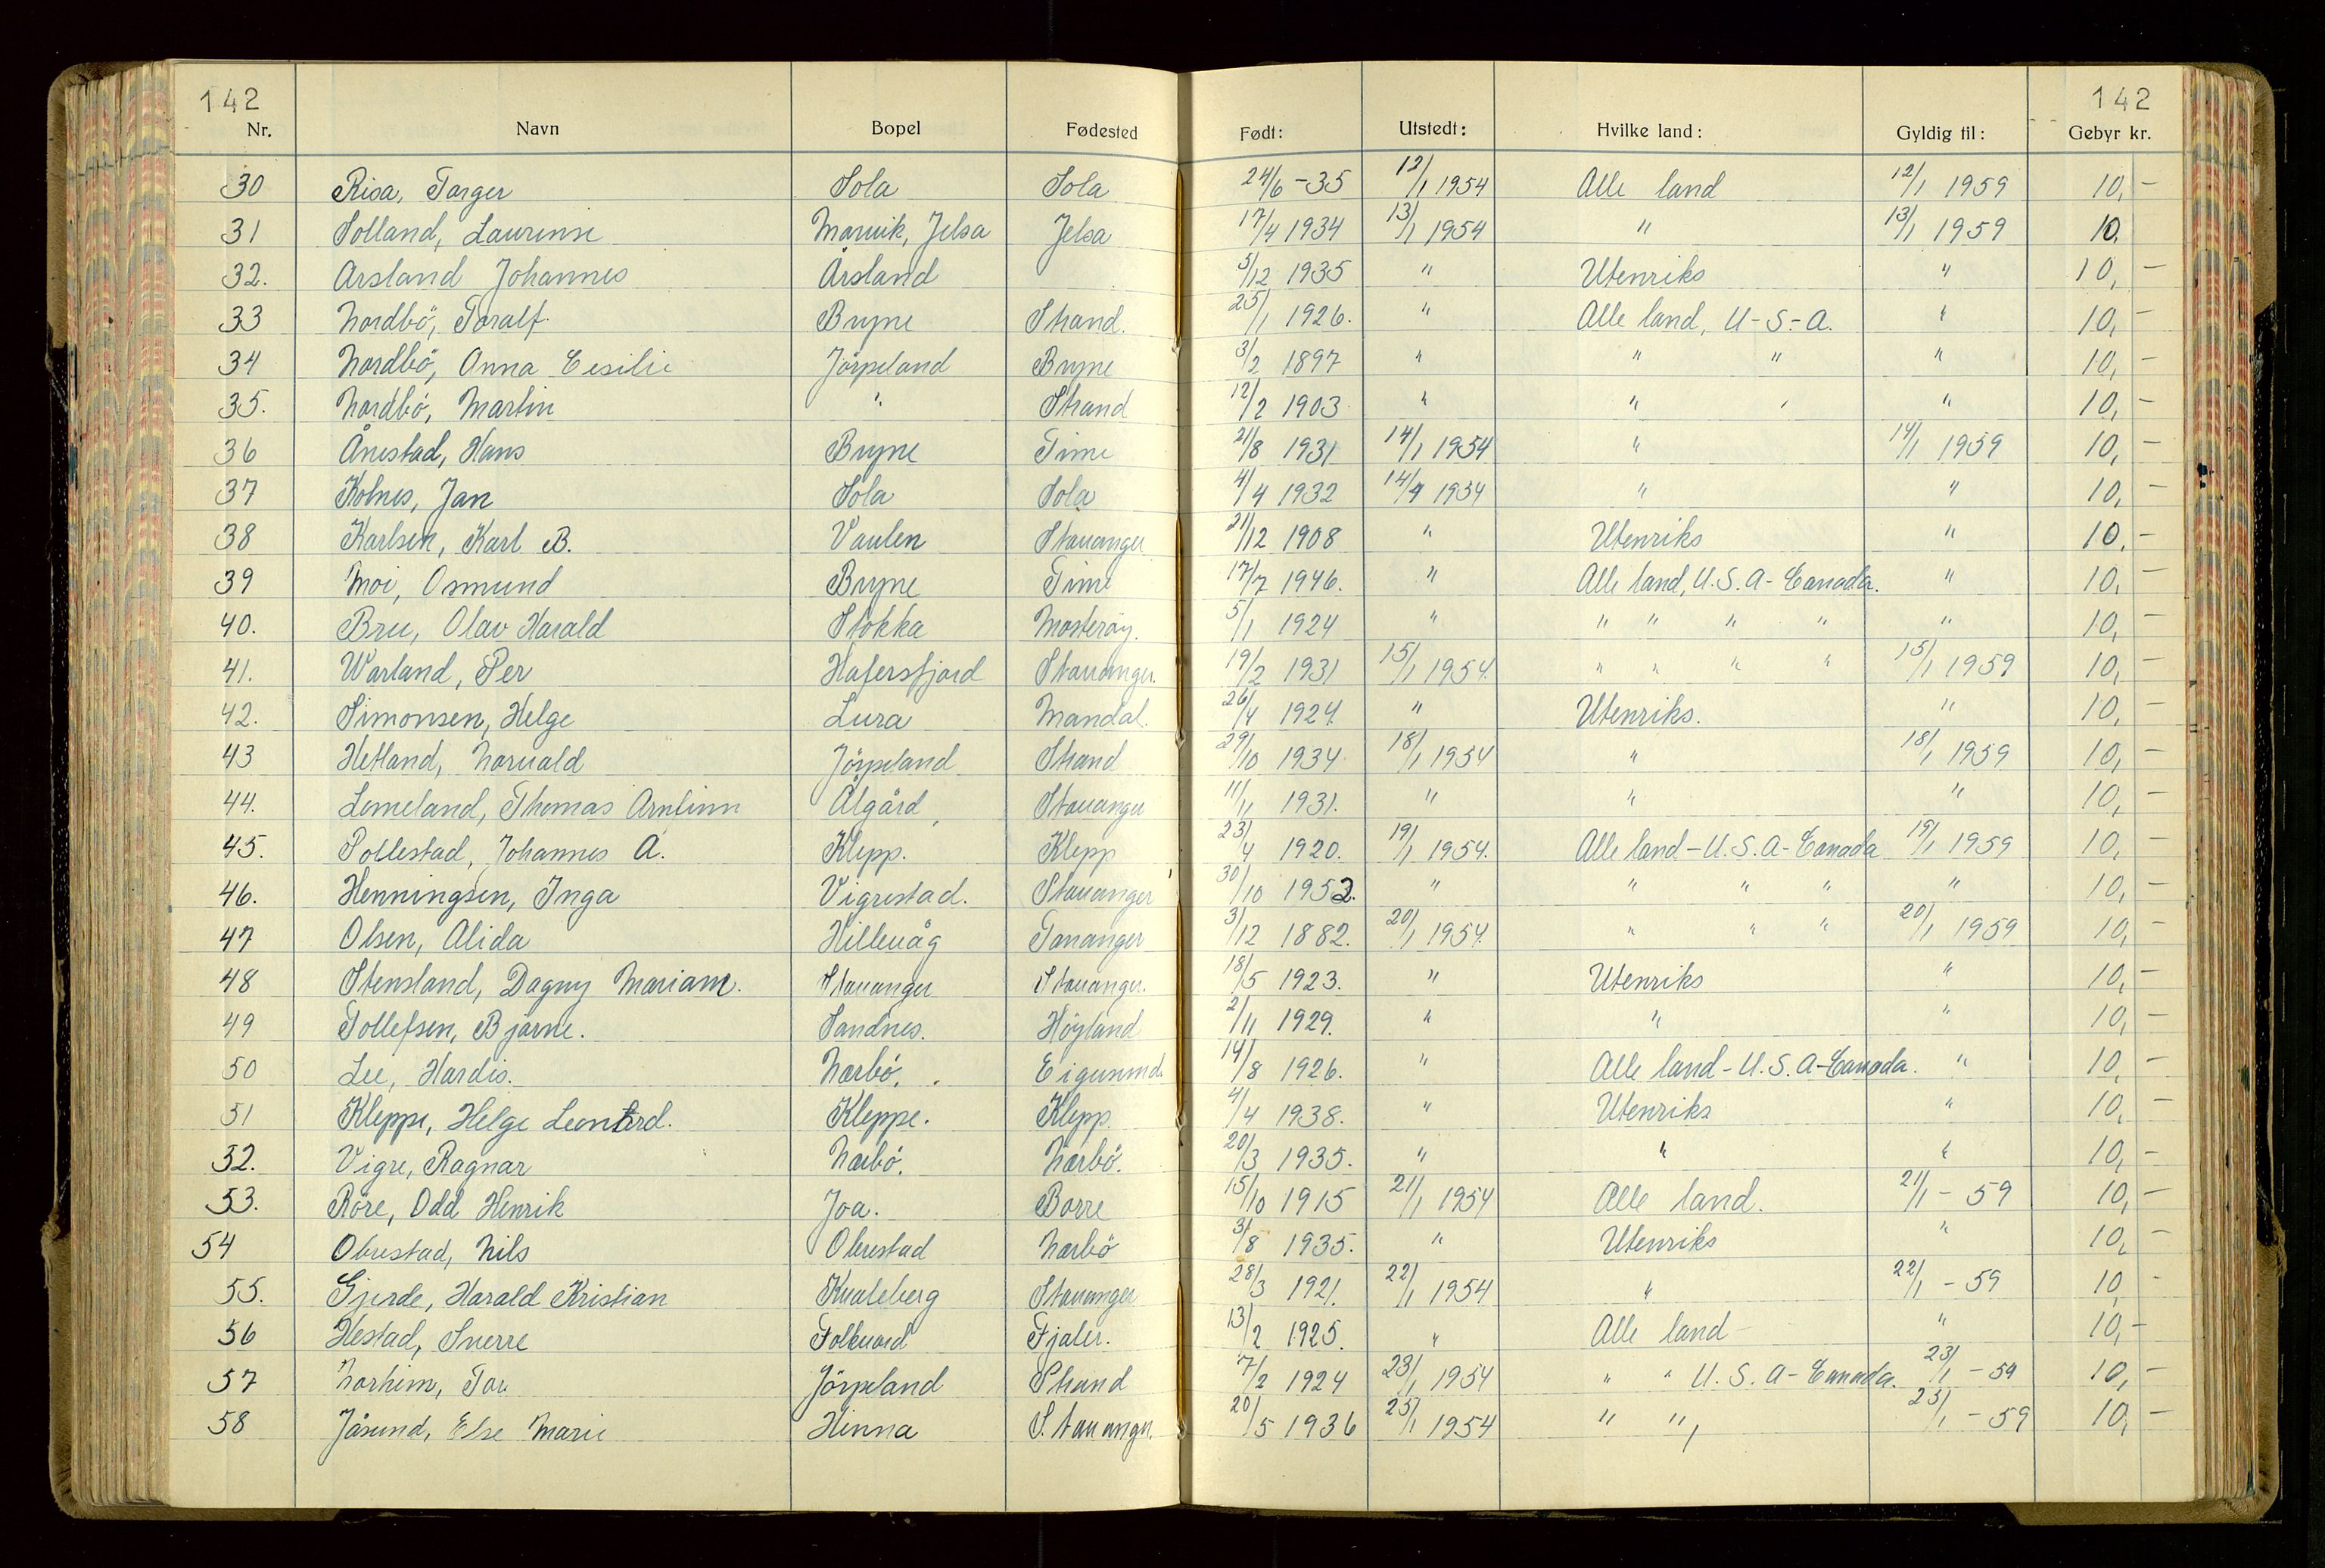 142 142
Nr. Navn Bopel Fødested Født: Utstedt: Hvilke land: Gyldig til: Gebyr kr.
30 Risa, Targer Sola Sola 24/6 -35 12/1 1954 Alle land 12/1 1959 10,-
31 Solland, Laurense Marvik, Jelsa Jelsa 17/4 1934 13/1 1954 " 13/1 1959 10,
32. Årsland Johannes Årsland 5/12 1935 " Utenriks " 10,-
33 Nordbö, Toralf. Bryne Strand. 25/1 1926. " Alle land, U-S-A. " 10,-
34 Nordbö, Anna Cesilie Jörpeland Bryne 3/2 1897 " " " " 10,-
35. Nordbö, Martin " Strand 12/2 1903 " " " " 10,-
36 Ånestad, Hans Bryne Time 21/8 1931 14/1 1954 " 14/1 1959 10,-
37 Kolnes, Jan Sola Sola 4/4 1932 14/1 1954 " " 10,-
38 Karlsen, Karl B. Vaulen Stavanger 21/12 1908 " Utenriks " 10.-
39 Moi, Osmund Bryne Time 17/7 1946. " Alle land, U.S.A-Canada. " 10,-
40. Bru, Olav Harald Stokka Mosteröy. 5/1 1924 " " " " " " 10,-
41. Warland, Per Hafersfjord Stavanger. 19/2 1931 15/1 1954 " " " " 15/1 1959 10,-
42. Simonsen, Helge Lura Mandal. 26/4 1924. " Utenriks. " 10,-
43 Hetland, Norvald Jörpeland Strand 29/10 1934 18/1 1954 " 18/1 1959 10,-
44. Lomeland, Thomas Arnfinn Ålgård, Stavanger 11/11 1931. " " " 10,-
45. Pollestad, Johannes A. Klepp. Klepp 23/4 1920. 19/1 1954. Alle land-U.S.A-Canada 19/1 1959 10,-
46. Henningsen, Inga Vigrestad. Stavanger 30/10 1952. " " " " " 10,-
47 Olsen, Alida Hillevåg Tananger 3/12 1882. 20/1 1954. " " " 20/1 1959 10,-
48 Stensland, Dagny Mariam. Stavanger Stavanger. 18/5 1923. " Utenriks " 10,-
49 Tollefsen, Bjarne. Sandnes. Höyland 2/11 1929. " " " 10,-
50 Lee, Hardis. Nærbö. Eigersund. 14/8 1926. " Alle land-U.S.A-Canada. " 10,-
51 Kleppe, Helge Leonard. Kleppe. Klepp. 4/4 1938. " Utenriks " 10,-
52. Vigre, Ragnar Nærbö. Nærbö. 20/3 1935. " " " 10,-
53. Röre, Odd Henrik Joa. Borre 15/10 1915 21/1 1954 Alle land. 21/1 - 59 10,-
54 Obrestad, Nils Obrestad Nærbö 3/8 1935. " Utenriks " 10,-
55. Gjerde, Harald Kristian Kvaleberg Stavanger 28/3 1921. 22/1 1954 " 22/1 - 59 10,-
56 Hestad, Sverre Folkvord Fjaler. 13/2 1925. " Alle land " 10,-
57 Norheim, Tor Jörpeland Strand 7/2 1924 23/1 1954 " " U.S.A-Canada. 23/1 - 59 10,-
58 Jåsund, Else Marie Hinna Stavanger. 20/5 1936 25/1 1954 " ", 25/1 - 59 10,-